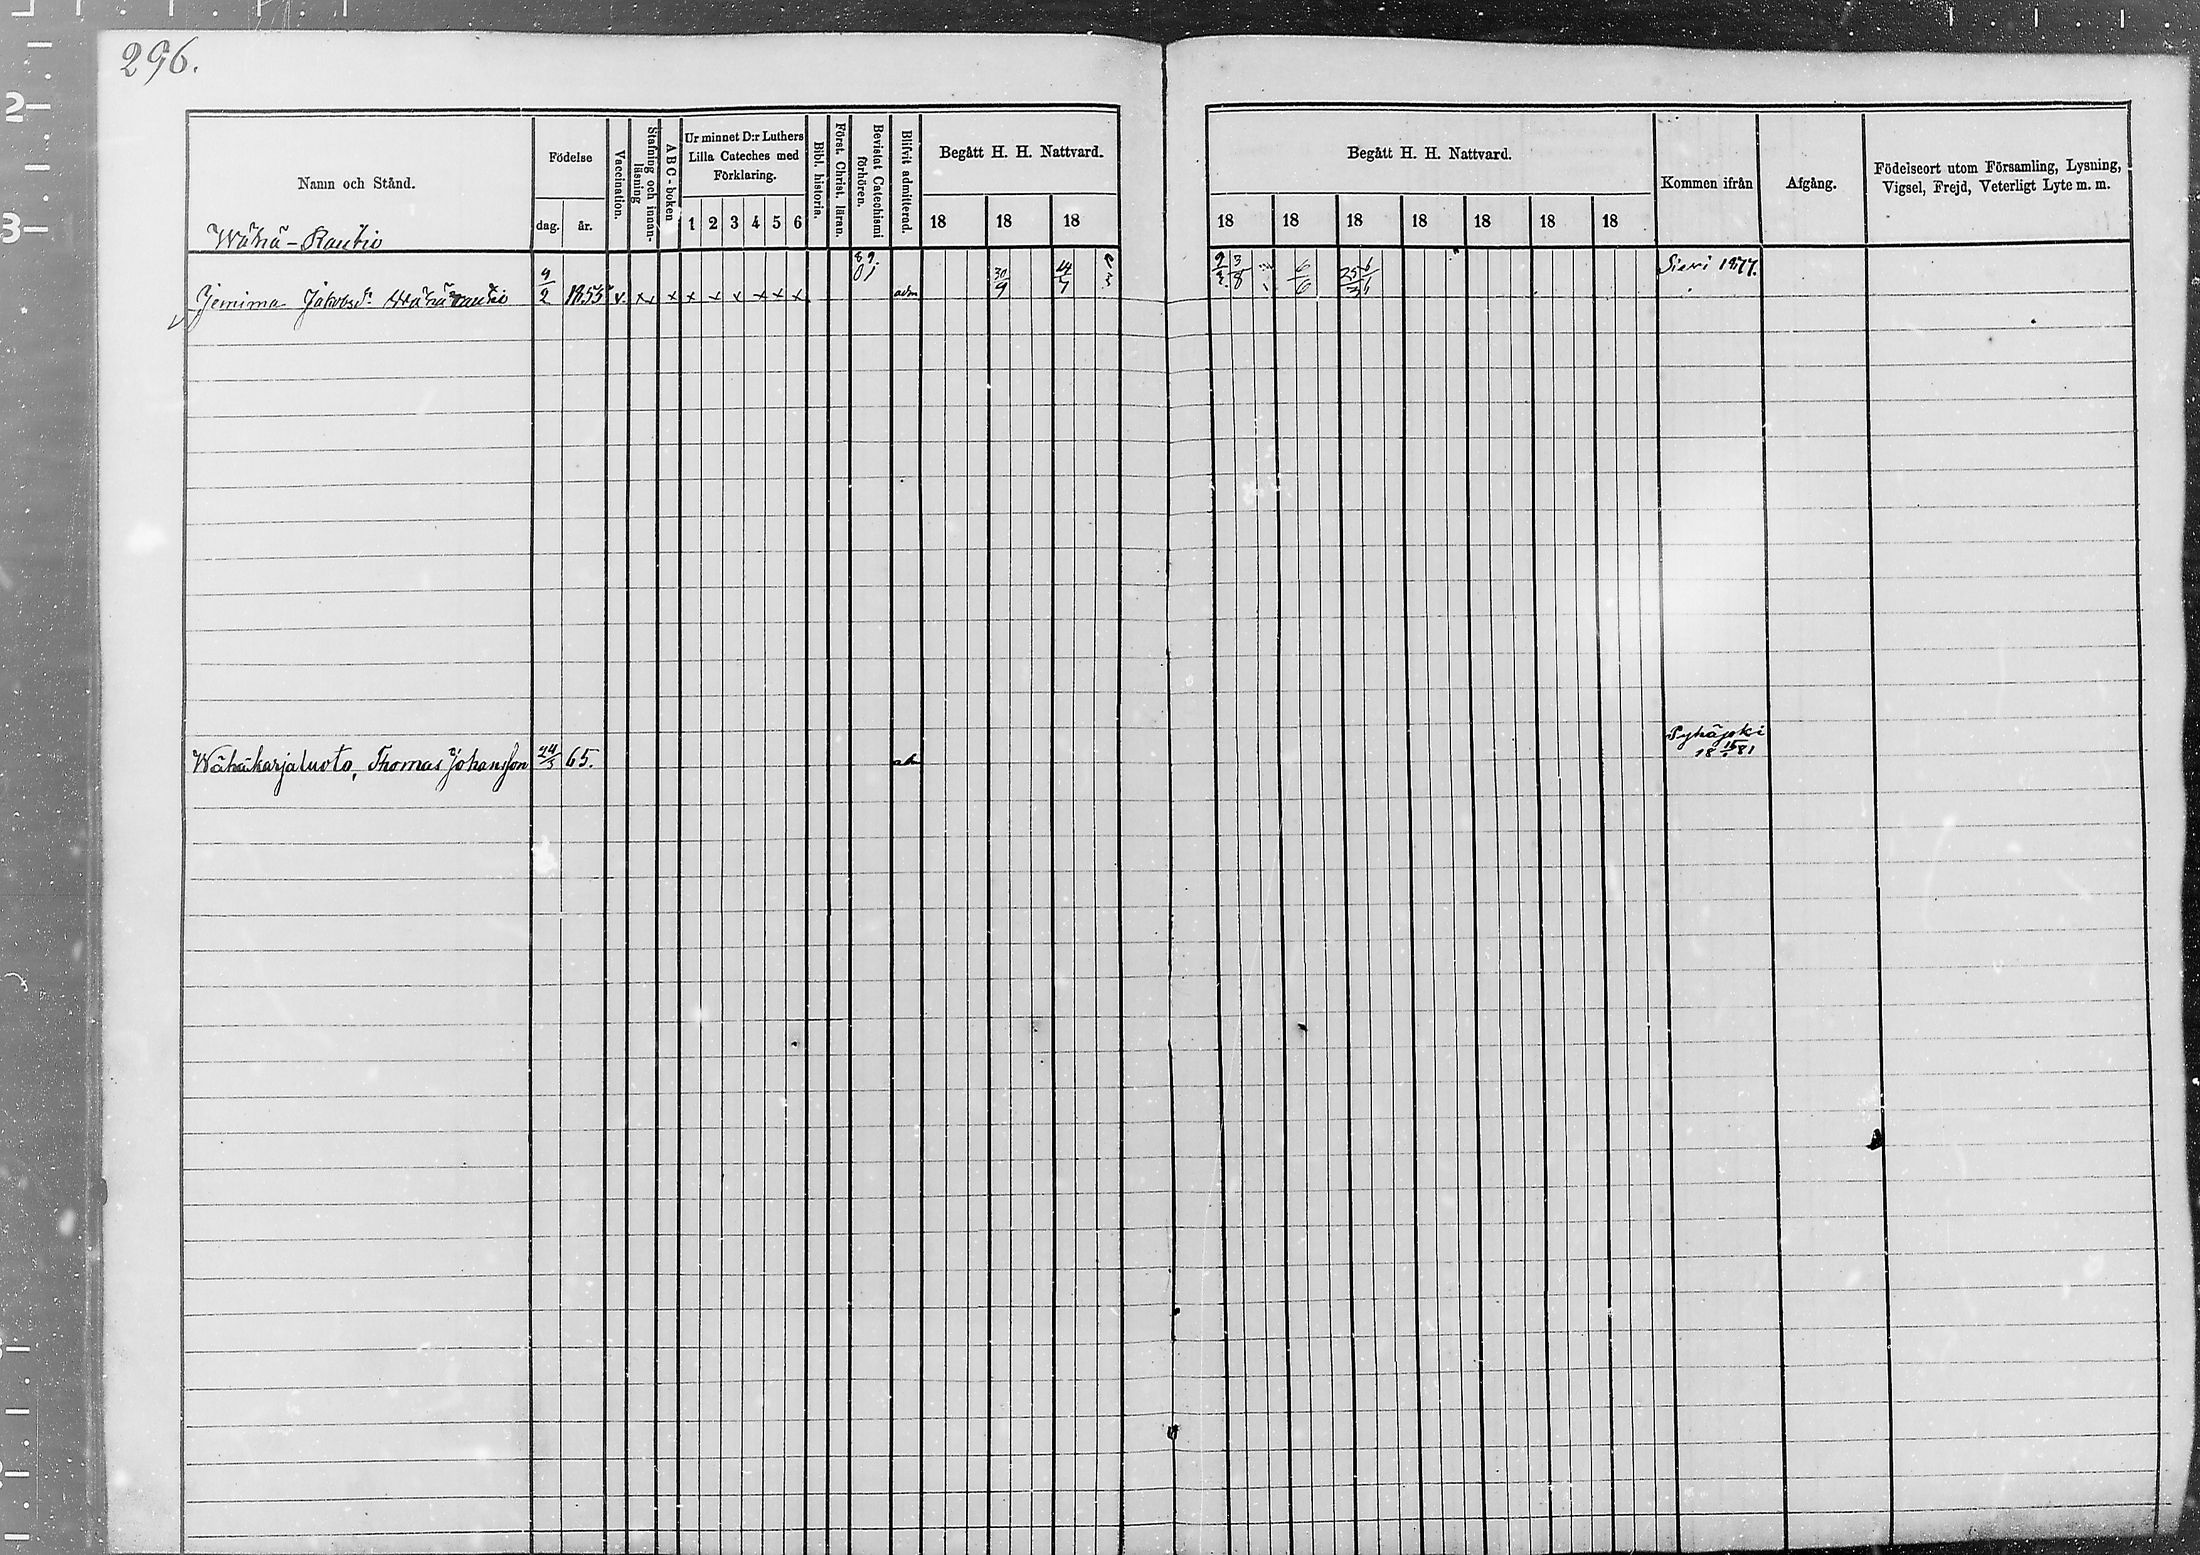 296.
Namn och Stånd.
Födelse
dag.
år.
Vaccination.
Stafning och innanläsning
A B C - boken
Ur minnet D:r Luthers
Lilla Cateches med
Förklaring.
1 2 3 4 5 6
Bibl. historia.
Först. Christ. läran.
Bevistat Catechismi
förhören.
Blifvit admitterad.
Begått H. H. Nattvard.
18 18 18
Begått H. H. Nattvard.
18 18 18 18 18 18 18
Kommen ifrån
Afgång.
Födelseort utom Församling, Lysning,
Vigsel, Frejd, Veterligt Lyte m. m.
Wähä-Rautio
Jemima Jakobsd:r Wähärautio 9/2 1855 v x x x x x x x x x adm 30/9 14/7 3/8 6/6 25/3 Sievi 1877.
Wähäkarjaluoto, Thomas Johansson 24/3 65.
Pyhäjoki
18 81